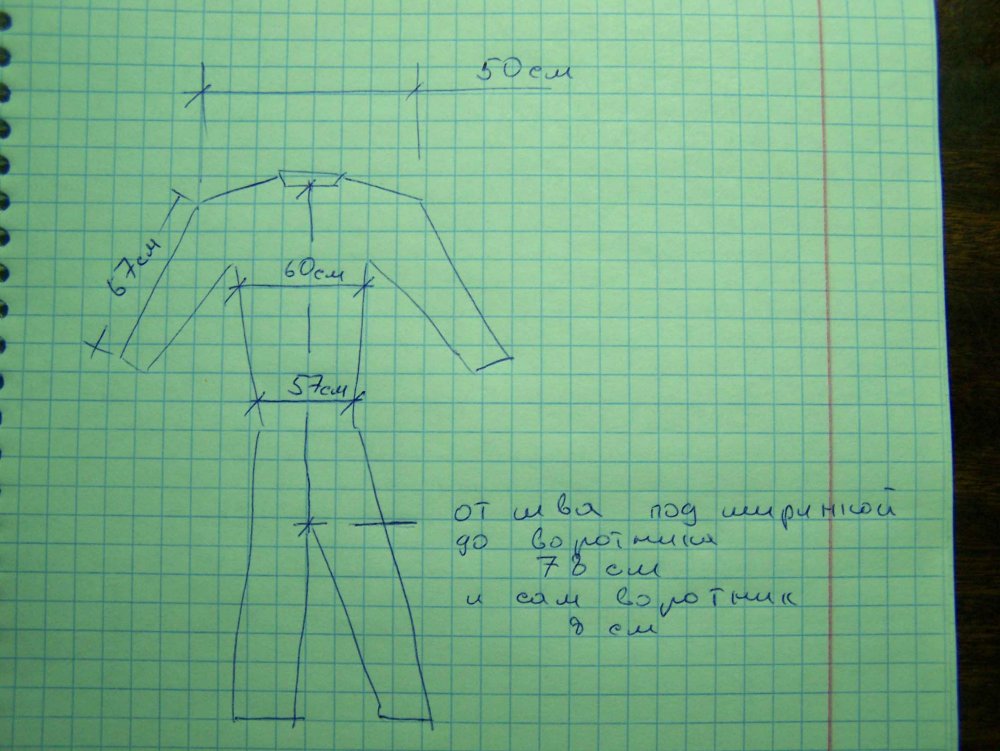 50см
67см
60см
57см
от шва под ширинкой
до воротника
78 см
и сам воротник
8 см